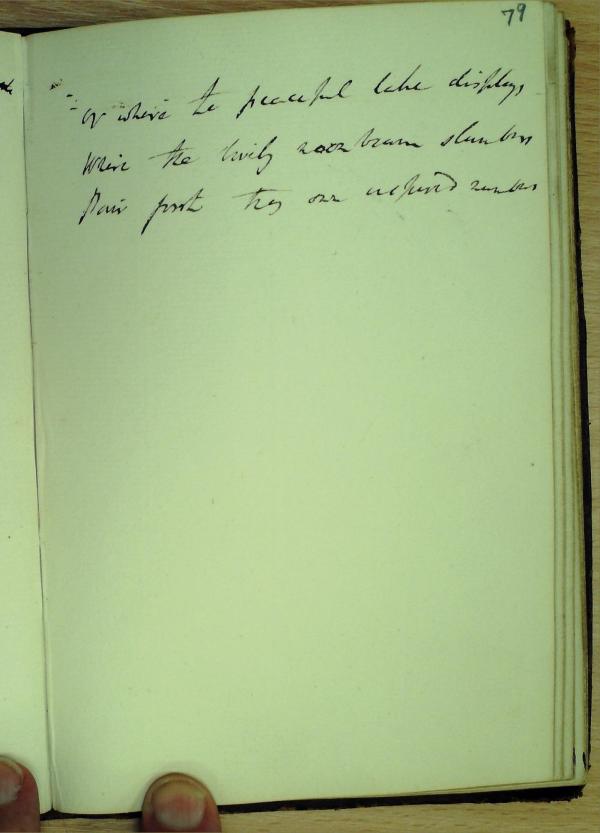 79
or where the peaceful lake displays
Where the lovely moonbeam slumbers
Pour forth thy own numbers